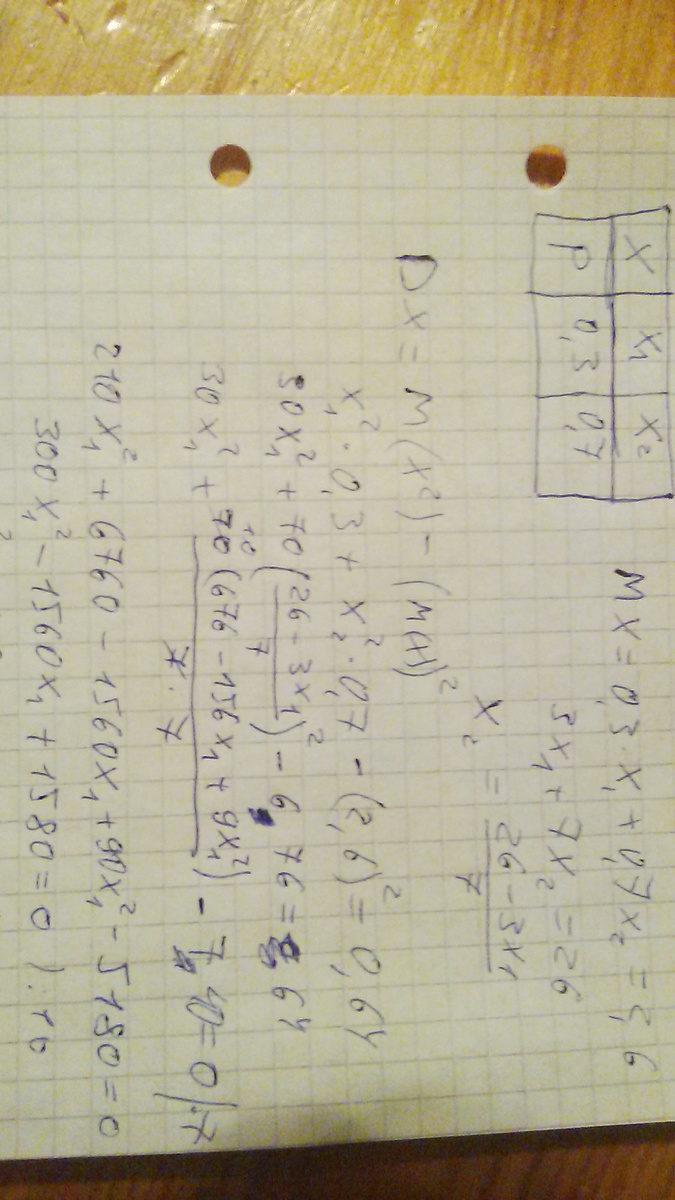 X x₁ x₂
P 0,3 0,7
MX = 0,3·x₁ + 0,7x₂ = 2,6
3x₁ + 7x₂ = 26
x₂ = (26 - 3x₁)/7
DX = M(x²) - (M(x))²
x₁²·0,3 + x₂²·0,7 - (2,6)² = 0,64
30x₁² + 70((26 - 3x₁)/7)² - 676 = 64
30x₁² + 70 10 (676 - 156x₁ + 9x₁²)/(7·7) - 740 = 0 |·7
210x₁² + 6760 - 1560x₁ + 90x₁² - 5180 = 0
300x₁² - 1560x₁ + 1580 = 0 ) : 10